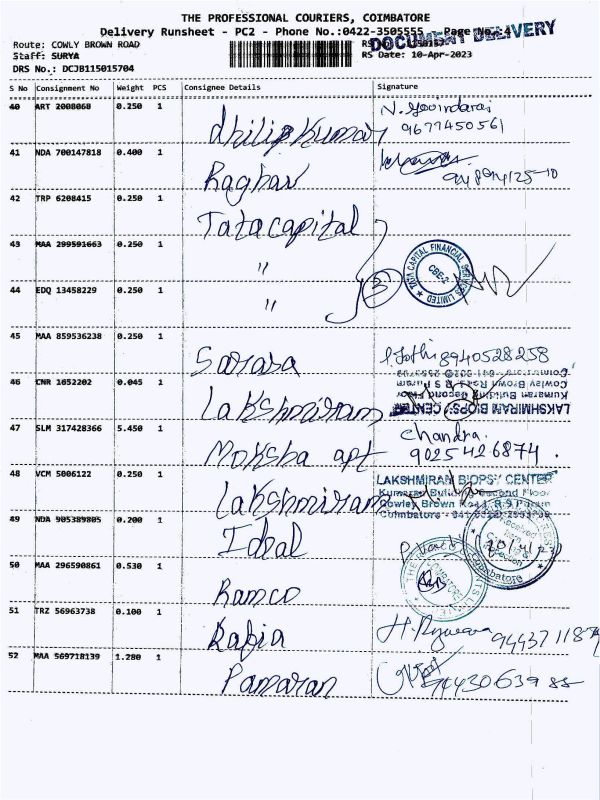 THE PROFESSIONAL COURIERS, COIMBATORE
Delivery Runsheet - PC2 - Phone No.:0422-3505555 - Page No.:4
DOCUMENT DELIVERY
Route: COWLY BROWN ROAD
Staff: SURYA RS Date: 10-Apr-2023
DRS No.: DCJB115015704
S No Consignment No Weight PCS Consignee Details Signature
40 ART 2008068 0.250 1 dhilip kumar N. Govindaraj
9677450561
41 NDA 700147818 0.400 1 Raghav
42 TRP 6208415 0.250 1 Tatacapital
43 MAA 299591663 0.250 1 "
3
TATA CAPITAL FINANCIAL SERVICES LIMITED
CBE-2
44 EDQ 13458229 0.250 1 "
45 MAA 859536238 0.250 1 Sarasa 8940528258
46 CNR 1652202 0.045 1 Lakshmiram
LAKSHMIRAM BIOPSY CENTER
Kumaran Building Second Floor
Cowley Brown Road, R S Puram
47 SLM 317428366 5.450 1 Moksha apt Chandra.
9025426874.
48 VCM 5006122 0.250 1 Lakshmiram
LAKSHMIRAM BIOPSY CENTER
Kumaran Building Second Floor
Cowley Brown Road, R.S Puram
Coimbatore
49 NDA 905389805 0.200 1
Coimbatore
50 MAA 296590861 0.530 1 Ramco
51 TRZ 56963738 0.100 1 Rafia
52 MAA 569718139 1.280 1 Pamaran